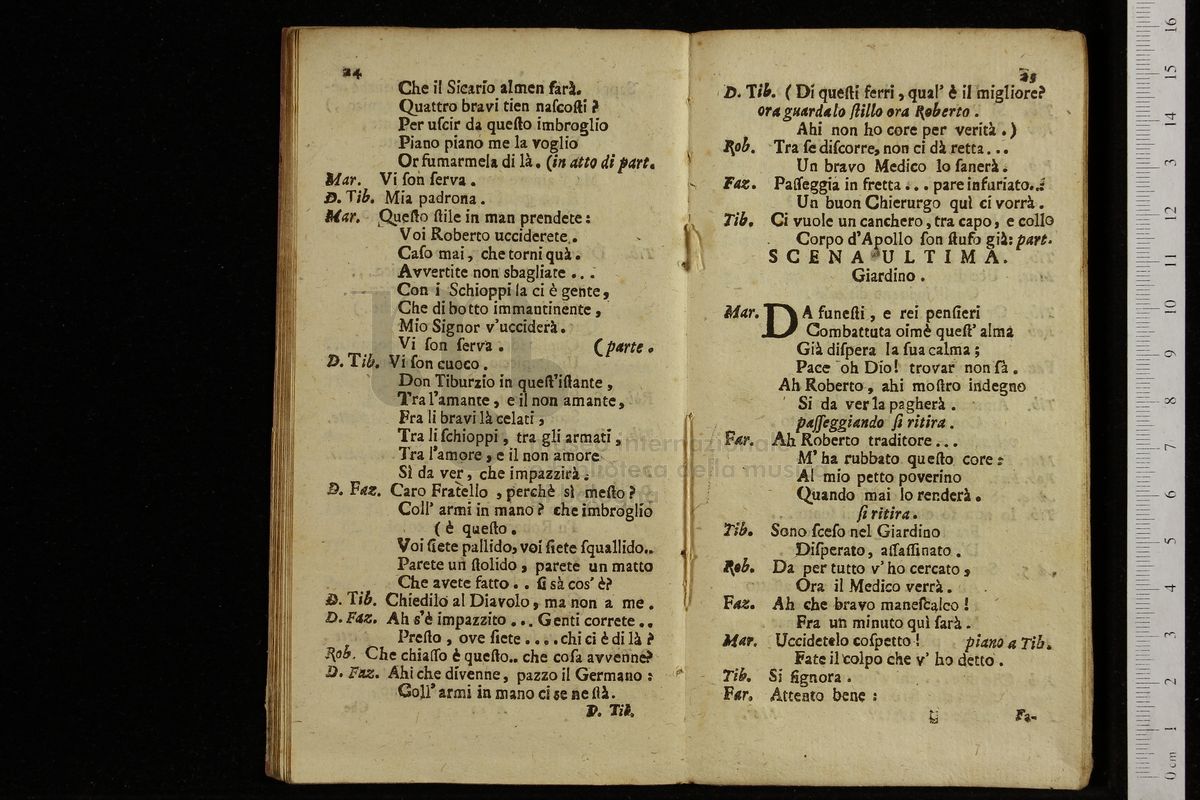 24
Che il Sicario almen farà.
Quattro bravi tien naſcoſti ?
Per uſcir da queſto imbroglio
Piano piano me la voglio
Or fumarmela di là. (in atto di part.
Mar. Vi ſon ſerva .
D. Tib. Mia padrona .
Mar. Queſto ſtile in man prendete :
Voi Roberto ucciderete .
Caſo mai , che torni quà .
Avvertite non sbagliate . . .
Con i Schioppi la ci è gente ,
Che di botto immantinente ,
Mio Signor v'ucciderà .
Vi ſon ſerva . (parte .
D. Tib. Vi ſon cuoco .
Don Tiburzio in queſt'iſtante ,
Tra l'amante , e il non amante ,
Fra li bravi là celati ,
Tra li ſchioppi , tra gli armati ,
Tra l'amore , e il non amore
Sì da ver , che impazzirà .
D. Faz. Caro Fratello , perchè sì meſto ?
Coll' armi in mano ? che imbroglio
( è queſto .
Voi ſiete pallido, voi ſiete ſquallido..
Parete un ſtolido , parete un matto
Che avete fatto . . ſi sà cos' è?
D. Tib. Chiedilo al Diavolo , ma non a me .
D. Faz. Ah s'è impazzito . . . Genti correte . .
Preſto , ove ſiete . . . . chi ci è di là ?
Rob. Che chiaſſo è queſto.. che coſa avvenne?
D. Faz. Ahi che divenne , pazzo il Germano :
Coll' armi in mano ci se ne ſtà.
D. Tib.
25
D. Tib. ( Di queſti ferri , qual' è il migliore?
ora guarda lo ſtillo ora Roberto .
Ahi non ho core per verità . )
Rob. Tra ſe diſcorre, non ci dà retta . . .
Un bravo Medico lo ſanerà .
Faz. Paſſeggia in fretta . . . pare infuriato. . .
Un buon Chierurgo quì ci vorrà .
Tib. Ci vuole un canchero , tra capo , e collo
Corpo d'Apollo ſon ſtufo già: part.
SCENA ULTIMA.
Giardino .
Mar. DA funeſti , e rei penſieri
Combattuta oimè queſt' alma
Già diſpera la ſua calma ;
Pace oh Dio ! trovar non ſà .
Ah Roberto , ahi moſtro indegno
Si da ver la pagherà .
paſſeggiando ſi ritira .
Far. Ah Roberto traditore . . .
M' ha rubbato queſto core :
Al mio petto poverino
Quando mai lo renderà .
ſi ritira .
Tib. Sono ſceſo nel Giardino
Diſperato , aſſaſſinato .
Rob. Da per tutto v' ho cercato ,
Ora il Medico verrà .
Faz. Ah che bravo maneſcalco !
Fra un minuto quì ſarà .
Mar. Uccidetelo coſpetto ! piano a Tib.
Fate il colpo che v' ho detto .
Tib. Si ſignora .
Far. Attento bene :
Fa-
internazionale
biblioteca della musica